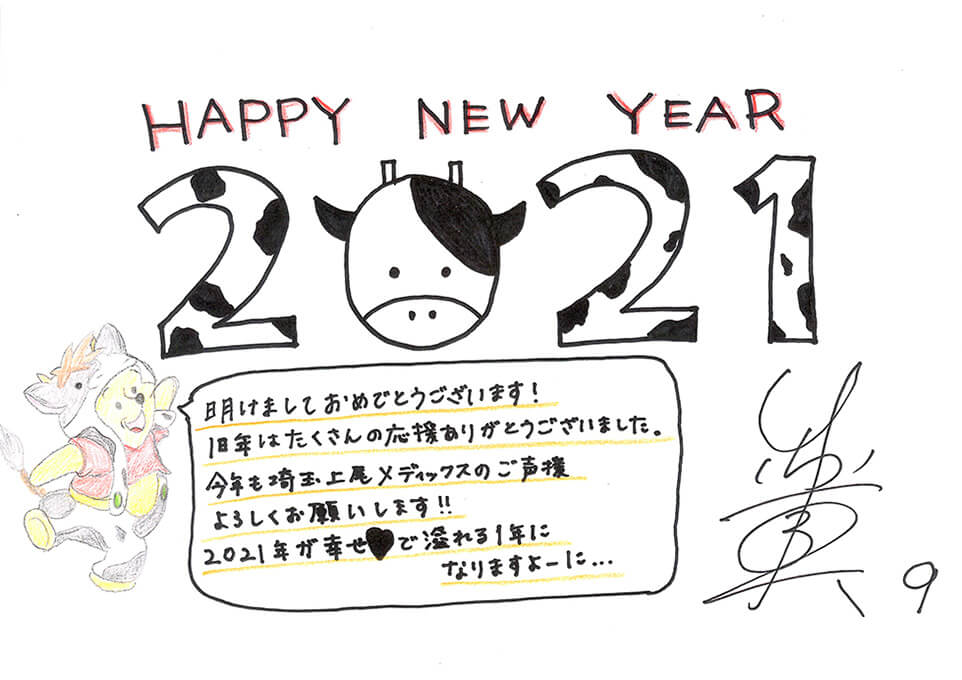 HAPPY NEW YEAR
2021
明けましておめでとうございます!
旧年はたくさんの応援ありがとうございました。
今年も埼玉上尾メディックスのご声援
よろしくお願いします!!
2021年が幸せ♥で溢れる1年に
なりますよーに...
9